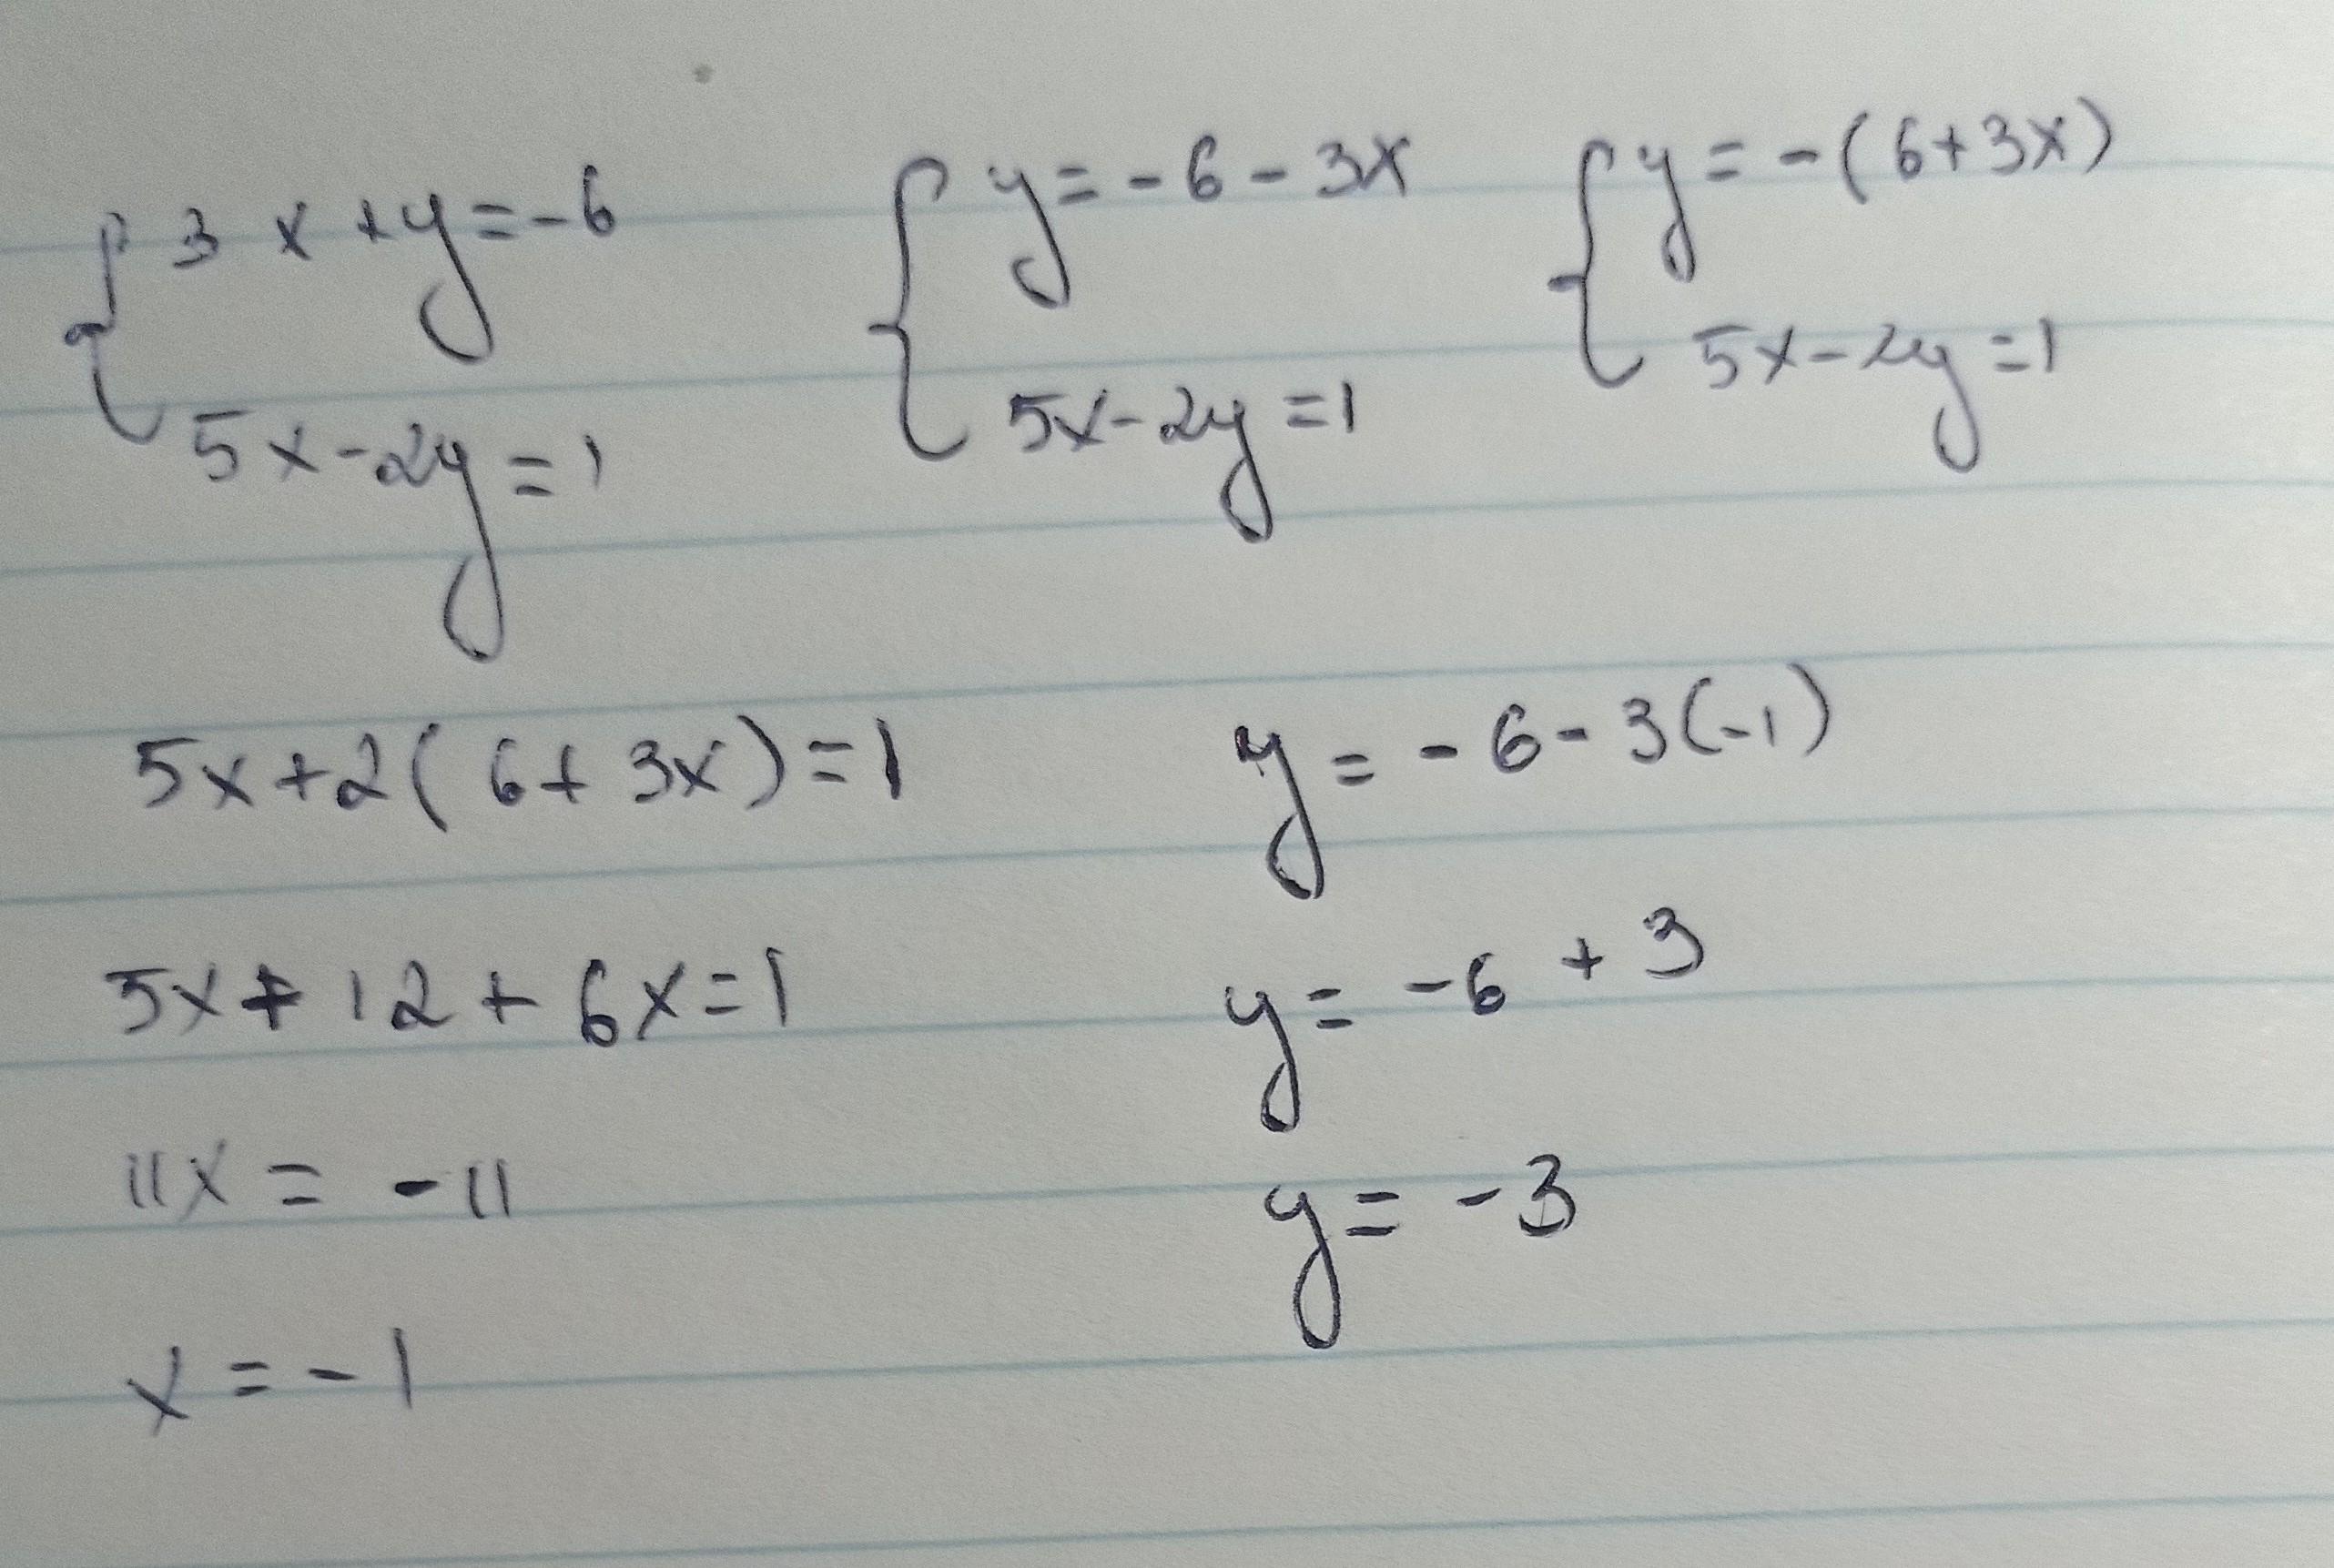 3x+y=-6
5x-2y=1
y=-6-3x
5x-2y=1
y=-(6+3x)
5x-2y=1
5x+2(6+3x)=1
5x+12+6x=1
11x=-11
x=-1
y=-6-3(-1)
y=-6+3
y=-3